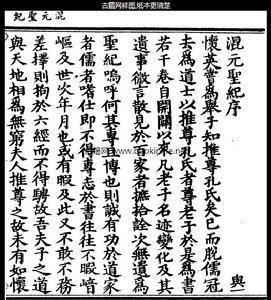 古籍网样图,纸本更清楚
混元聖紀
混元聖紀序 與
懷英嘗為舉子知推尊孔氏矣已而脫儒冠
去為道士以推尊孔氏者尊老子於是為書
若干卷自開闢以來凡老子名迹變化及其
遺事微言散見於百家者摭拾詮次無遺為
聖紀嗚呼何其專且博也則誠有功於道家
者儒者嗜仕即不得專志於書往往不暇
嶇及世次年月也或有暇及此又不敢不務
差擇則拘於六經而不得騁故吾夫子之道
與天地相為無窮夫人推尊之故未有如懷